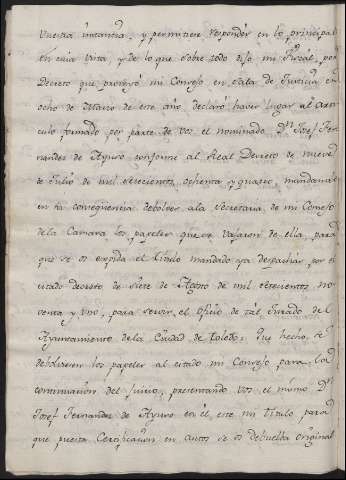 Vuestra instancia, y permitiere responder en lo principal
en cuia vista, y de lo que sobre todo dijo mi Fiscal, por
Decreto que proveyó mi Consejo en Sala de Justicia en
ocho de Marzo de este año, declaró haver lugar al arti-
culo formado por parte de vos el nominado Dn. Josef Fer-
nandez de Ayuso conforme al Real Decreto de nueve
de Julio de mil setecientos ochenta y quatro, mandando
en su conseqüencia debolver a la Secretaria de mi Consejo
de la Camara los papeles que se vajaron de ella, para
que se os expida el titulo mandado ya despachar por el
citado decreto de siete de Agosto de mil setecientos no-
venta y uno, para servir el oficio de tal Jurado del
Ayuntamiento de la Ciudad de Toledo; Que hecho, se
debolvieren los papeles al citado mi Consejo para la
continuacion del juicio, presentando vos el mismo Dn.
Josef Fernandez de Ayuso en él este mi titulo para
que puesta Certificacion en autos se os debuelta original